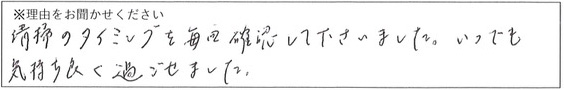 ※理由をお聞かせください
清掃のタイミングを毎回確認して下さいました。いつでも
気持ち良く過ごせました。